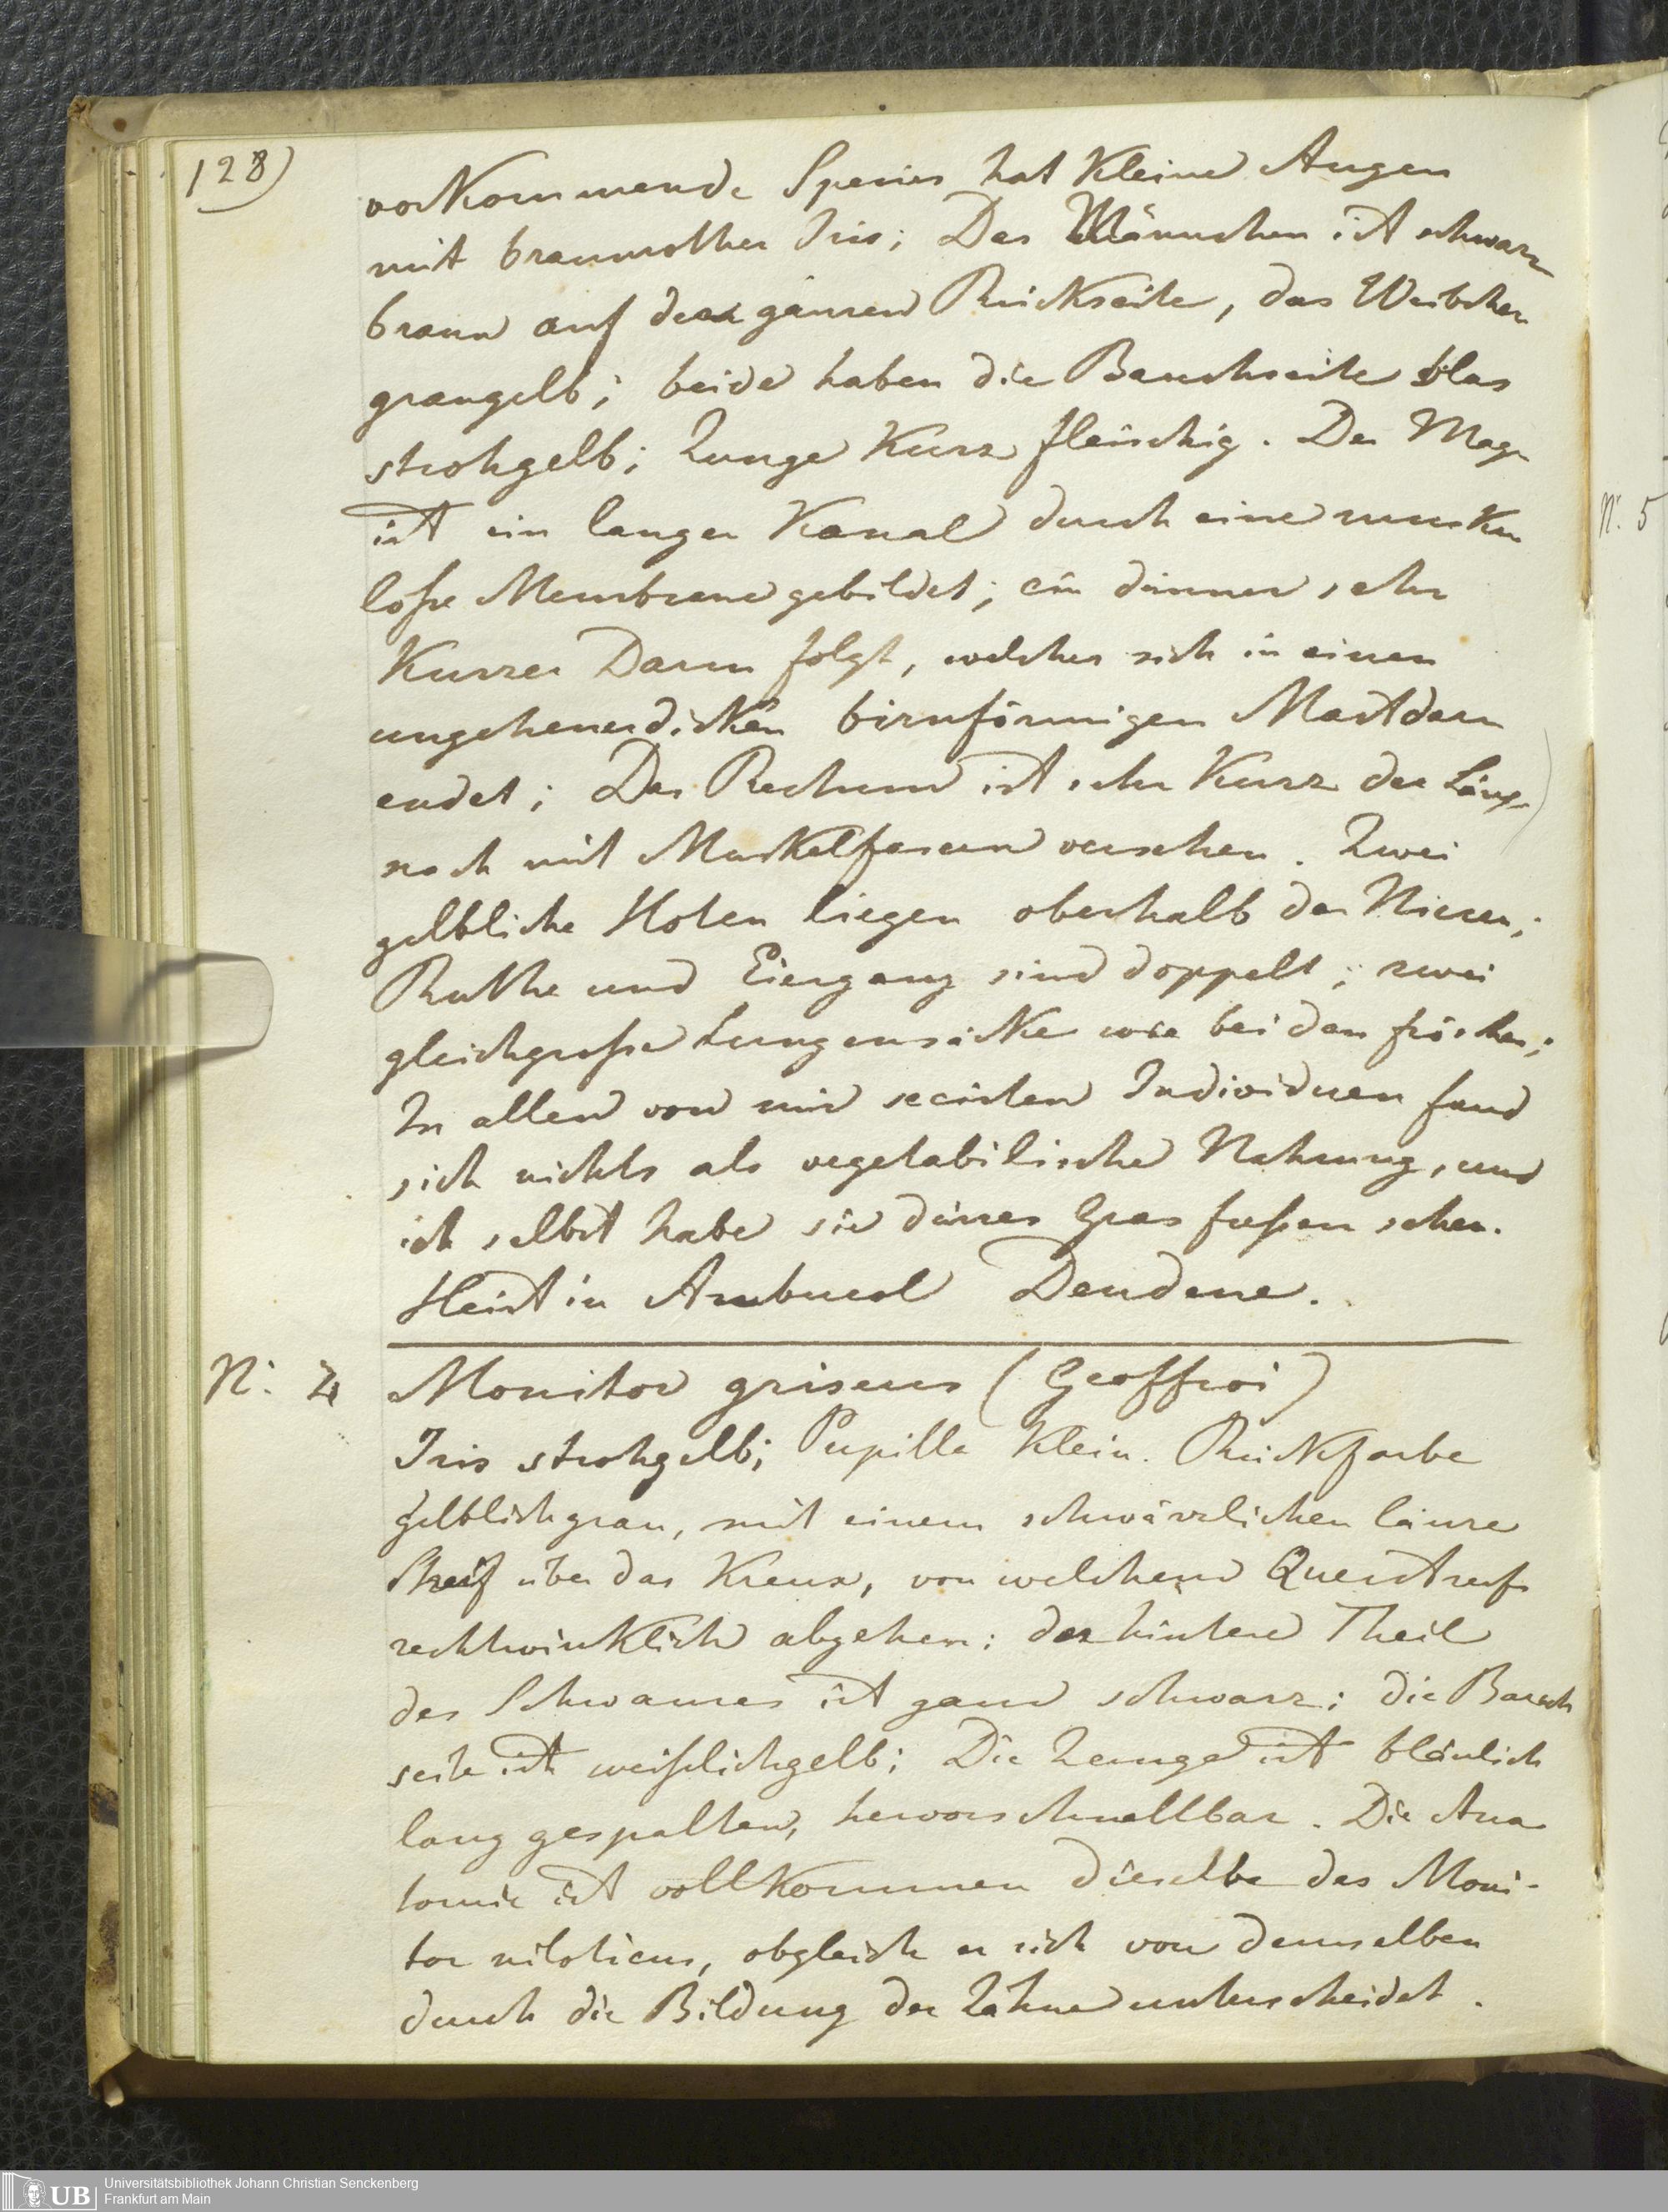 128)
vorkommende Species hat kleine Augen
mit braunrother Iris; Das Männchen ist schwarz
braun auf der ganzen Rückseite, das Weibchen
graugelb; beide haben die Bauchseite blas
strohgelb; Zunge kurz fleischig. Der Magen
ist ein langer Kanal durch eine muskel
lose Membrane gebildet; ein dünner sehr
kurzer Darm folgt, welcher sich in einen
ungeheuerdicken birnförmigen Mastdarm
endet; Das Rectum ist sehr kurz der Länge
nach mit Muskelfasern versehen. Zwei
gelbliche Hoten liegen oberhalb der Nieren;
Ruthe und Eiergang sind doppelt; zwei
gleichgroße Lungensäcke wie bei den fröschen;
In allen von mir secirten Individuen fand
sich nichts als vegetabilische Nahrung, und
ich selbst habe sie dürres Gras freßen sehen.
Heist in Dendene.
N: 4 Monitor griseus (Geoffroi)
Iris strohgelb; Pupille klein. Rückfarbe
gelblichgrau, mit einem schwärzlichen länge
Streif über das Kreuz, von welchem Querstreife
rechtwinklich abgehen; der hintere Theil
des Schwanzes ist ganz schwarz; die Bauch
seite ist weißlichgelb; Die Zunge ist bläulich
lang gespalten, hervorschnellbar. Die Ana
tomie ist vollkommen dieselbe des Moni-
tor niloticus, obgleich er sich von demselben
durch die Bildung der Zähne unterscheidet.
N: 5
UB Universitätsbibliothek Johann Christian Senckenberg
Frankfurt am Main